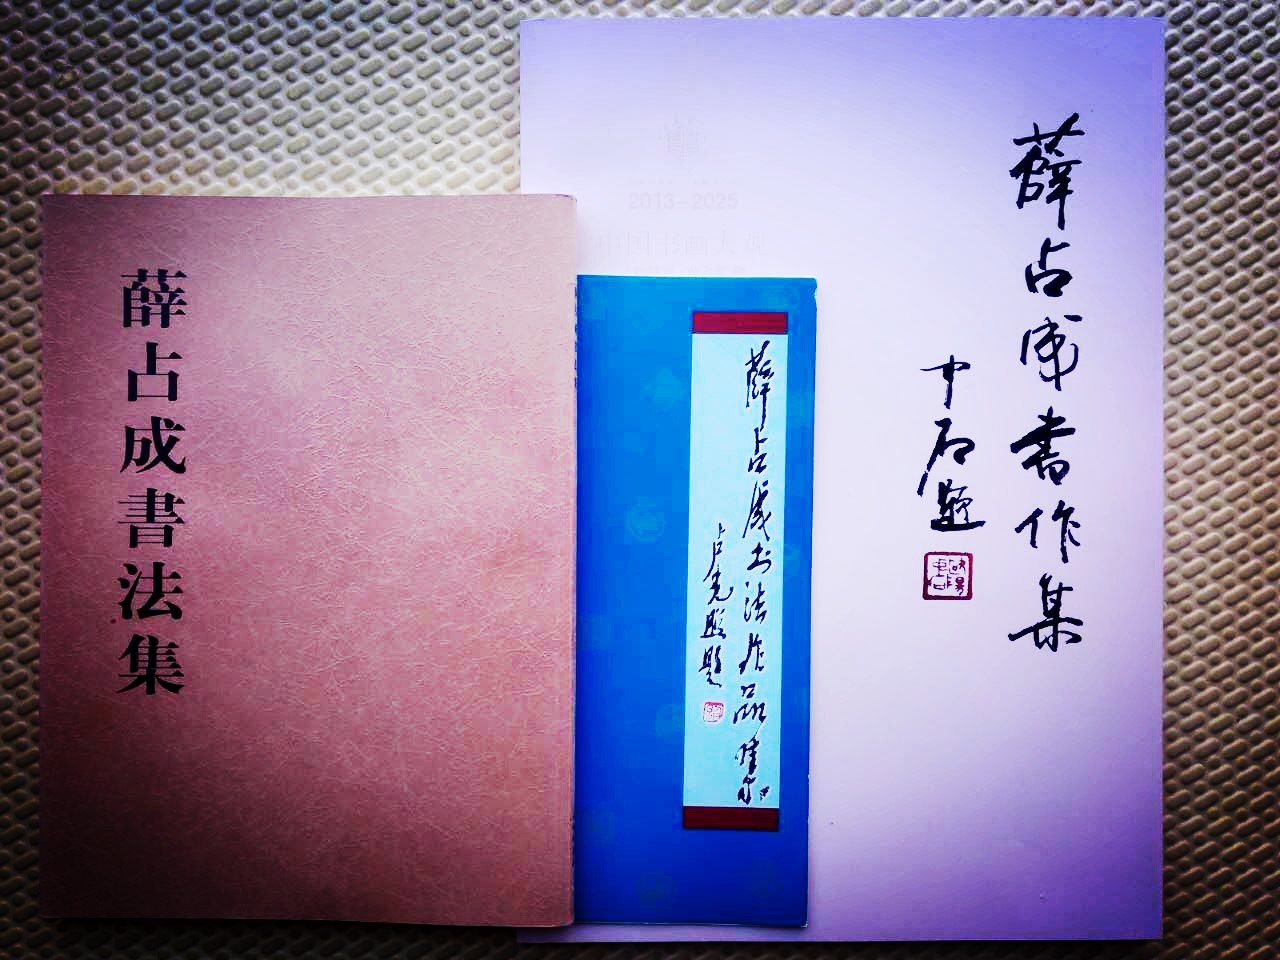 薛占成書法集
2013-2025
中国书画大观
薛占成书法作品
占光熙題
薛占成書作集
中石題